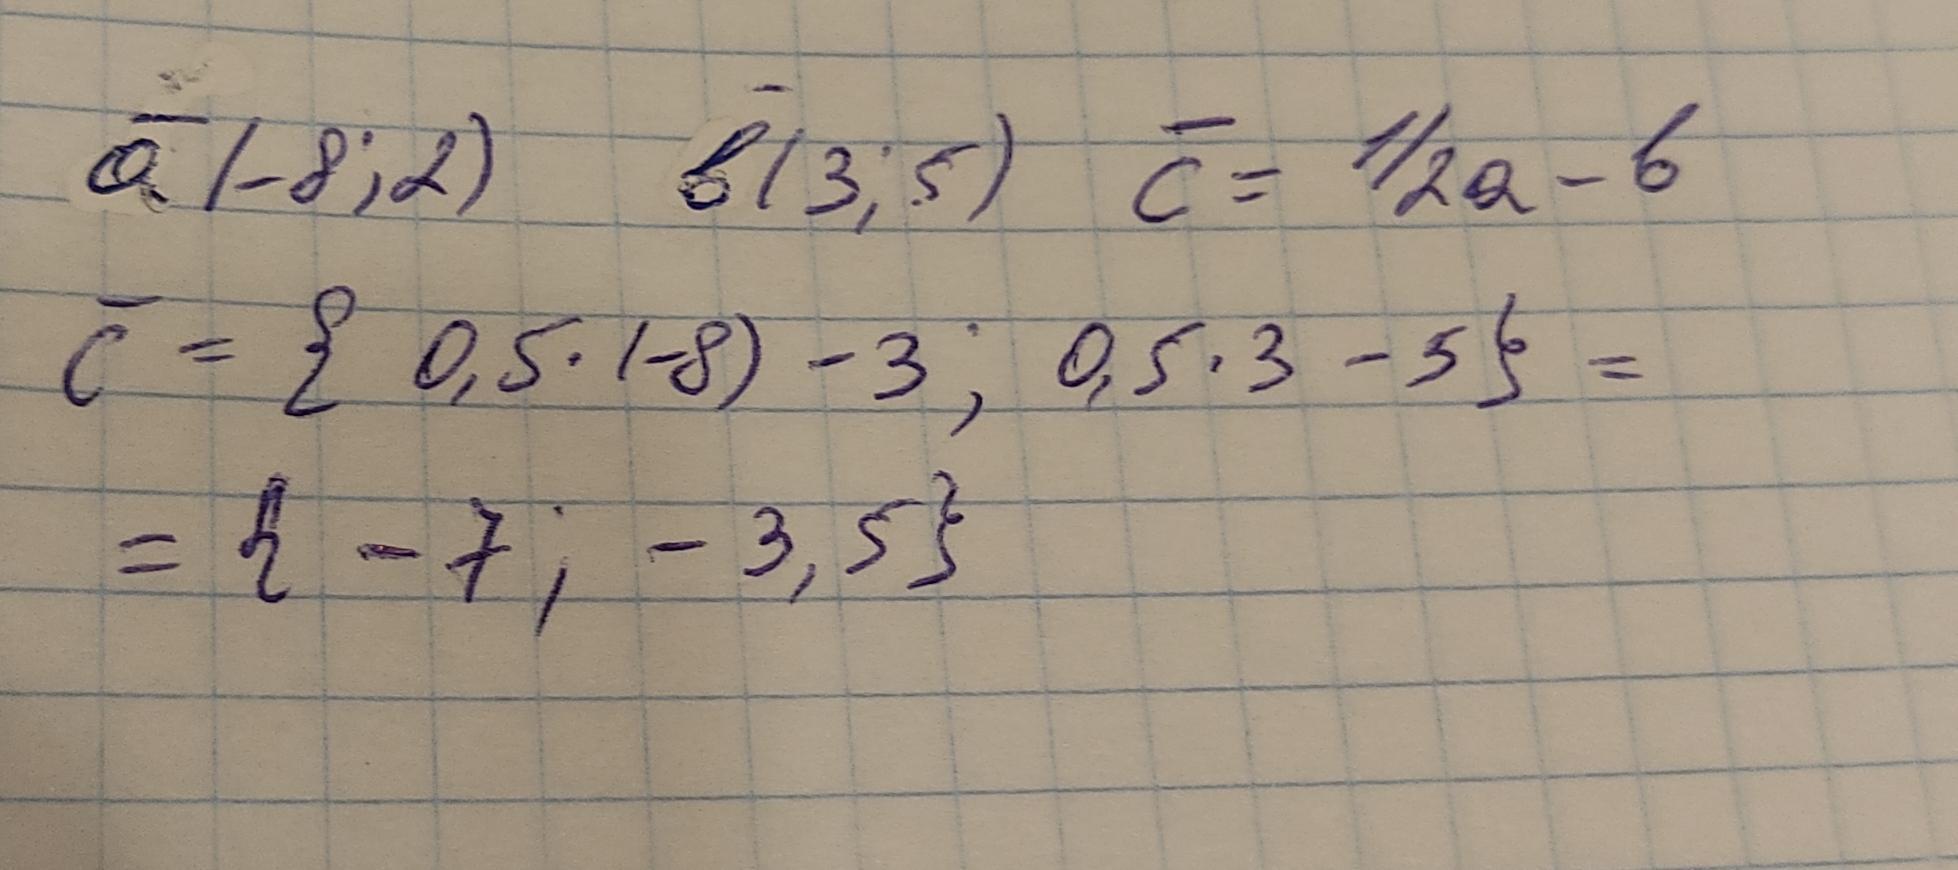 a̅ (-8; 2) b̅ (3; 5) c̅ = 1/2a - b
c̅ = { 0,5 · (-8) - 3; 0,5 · 3 - 5} =
= { - 7; - 3,5}